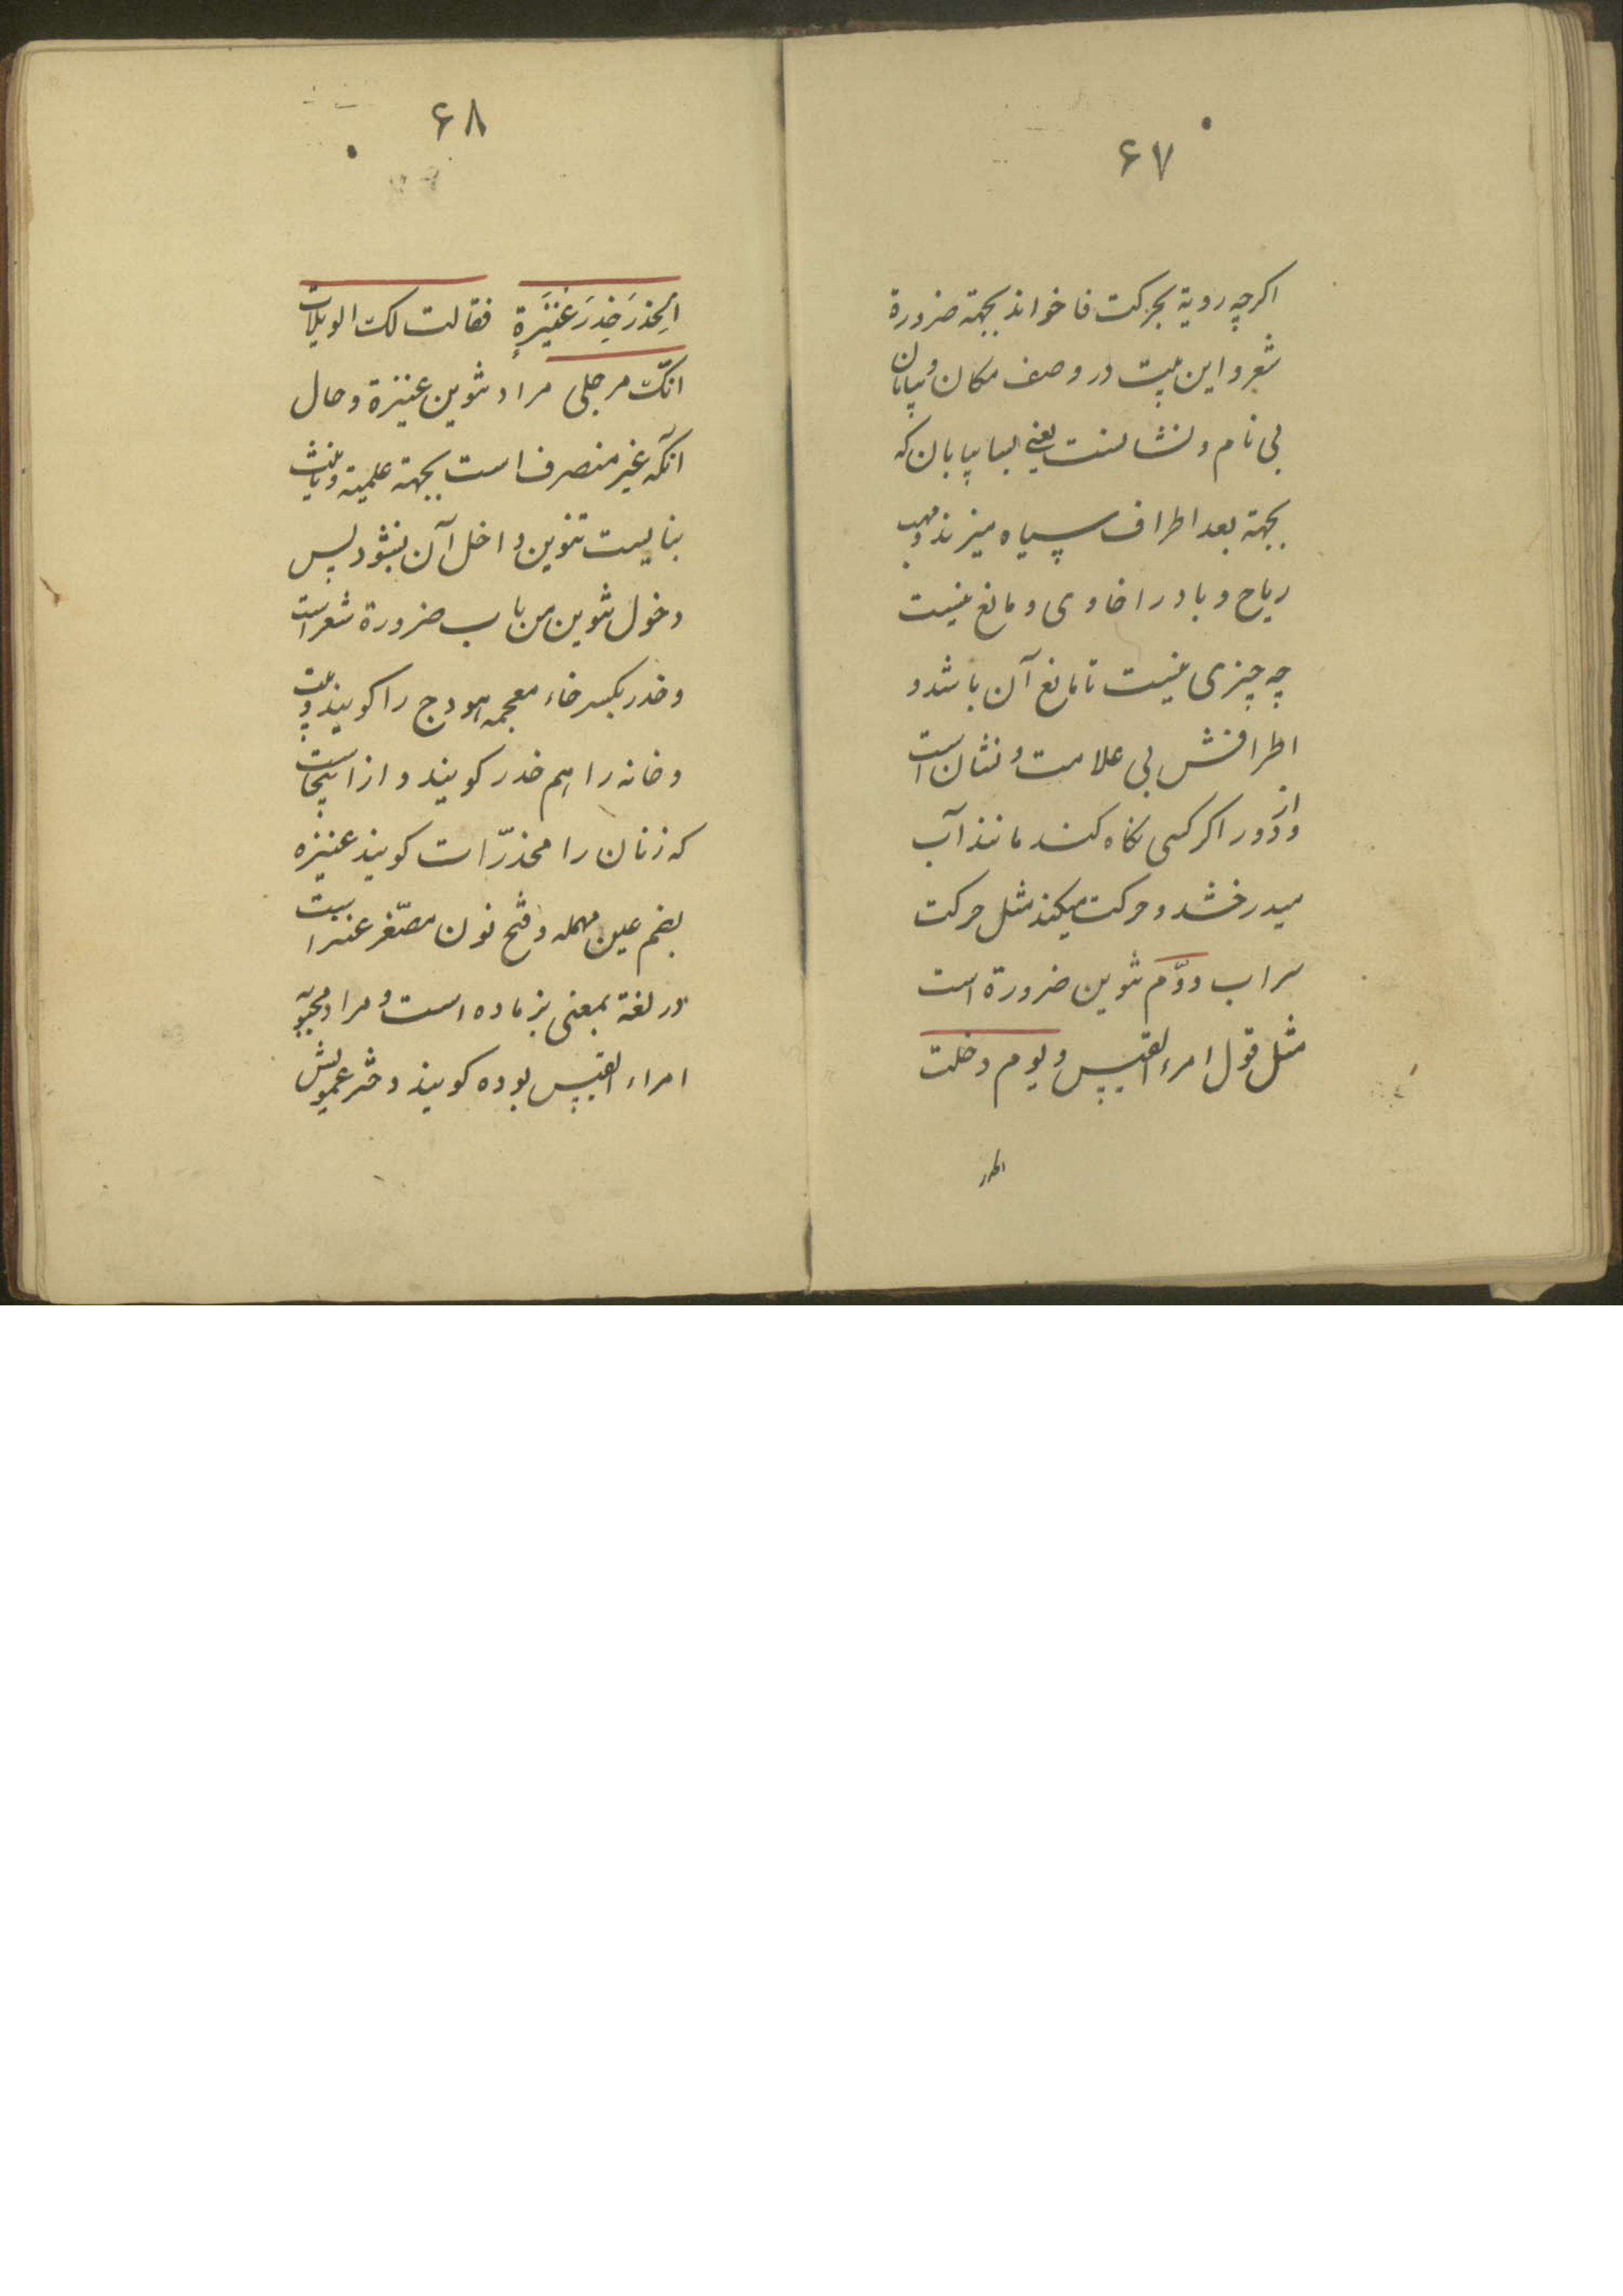 ۶۷
اکرچه رویة بحرکت فا خواند بجهة ضرورة
شعر و این بیت در وصف مکان و بیابان
بی نام و نشانست یعنی بسا بیابان که
بجهة بعد اطراف سیاه میزند و مهب
ریاح و باد را حاوی و مانع نیست
چه چیزی نیست تا مانع آن باشد و
اطرافش بی علامت و نشان است
و از دور اکر کسی نکاه کند مانند آب
میدرخشد و حرکت میکند مثل حرکت
سراب دوّم تنوین ضرورة است
مثل قول امرء القیس و یوم دخلت
الخدر
۶۸
الخِدرَ خِدرَ عُنَیْزَةٍ فقالت لک الویلات
انکّ مرجلی مراد تنوین عنیزة و حال
آنکه غیر منصرف است بجهة علمیة و تأنیث
بنایست تنوین داخل آن بشود پس
دخول تنوین من باب ضرورة شعر است
و خدر بکسر خاء معجمه هودج را کویند و بیت
و خانه را هم خدر کویند و از اینجاست
که زنان را مخدّرات کویند عنیزه
بضم عین مهمله و فتح نون مصّغر عنز است
در لغة بمعنی بز ماده است و مراد محبوبه
امراء القیس بوده کویند دختر عمویش